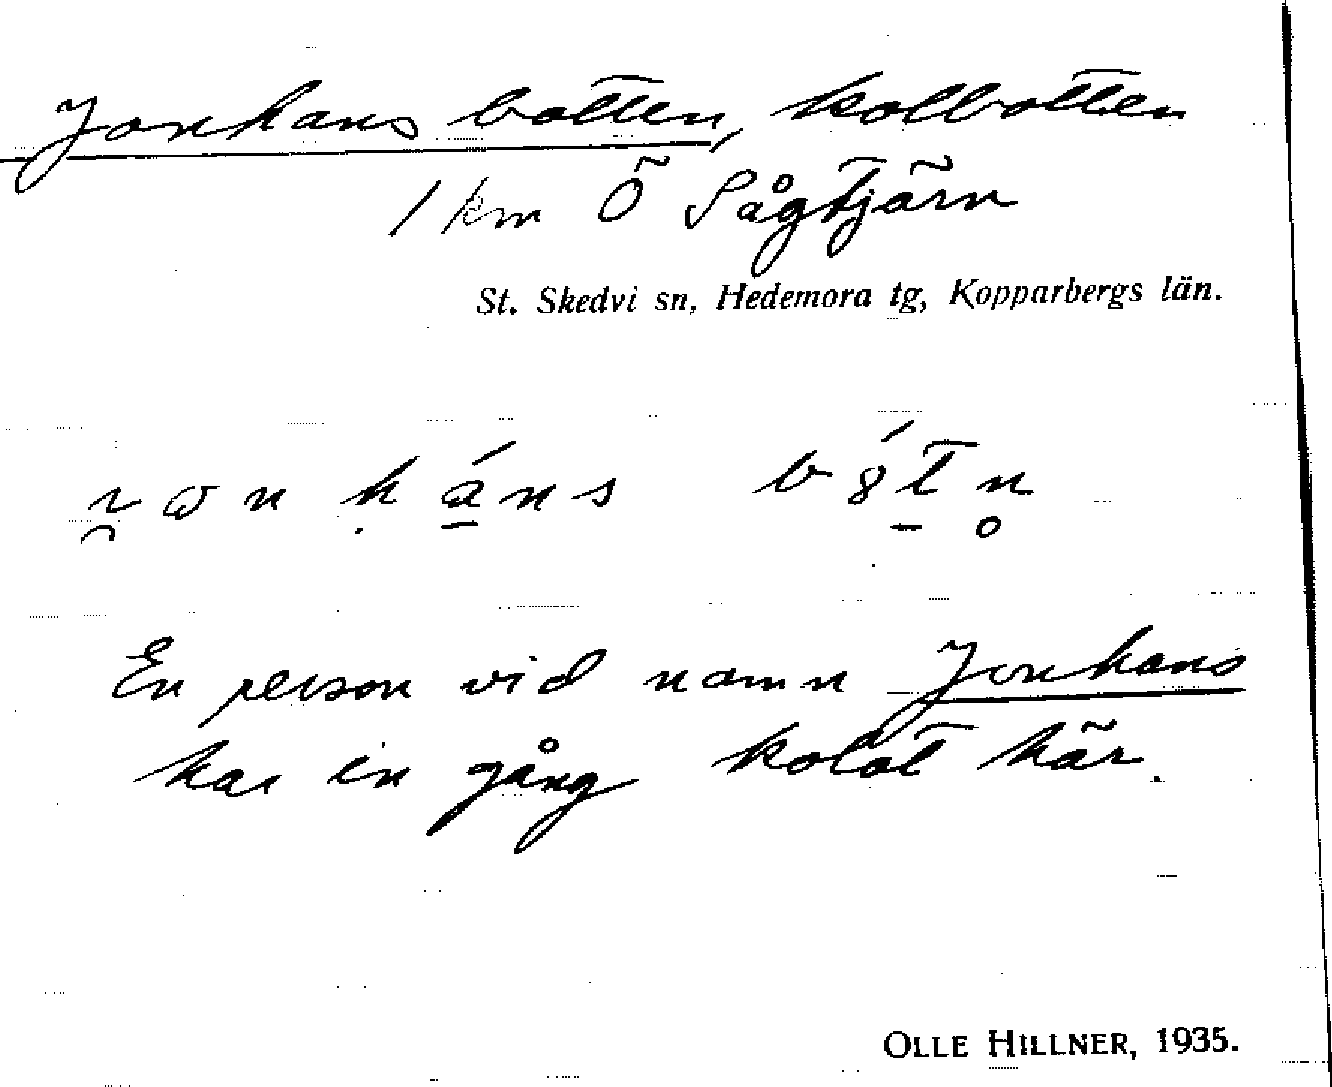 Jonhans botten, kolbotten
1 km Ö Sågtjärn
St. Skedvi sn, Hedemora tg, Kopparbergs län.
En person vid namn Jonhans
har en gång kolat här.
OLLE HILLNER, 1935.